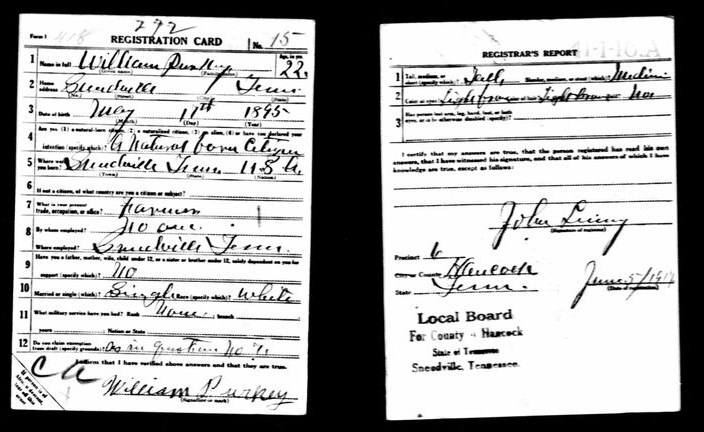 292
Form 1 418 REGISTRATION CARD No. 15
1 Name in full William Purkey Age, in yrs. 22
(Given name) (Family name)
2 Home address Sneedville Tenn
(No.) (Street) (City) (State)
3 Date of birth May 17th 1895
(Month) (Day) (Year)
4 Are you (1) a natural-born citizen, (2) a naturalized citizen, (3) an alien, (4) or have you declared your
intention (specify which)? A Natural born Citizen
5 Where were you born? Sneedville Tenn U S A
(Town) (State) (Nation)
6 If not a citizen, of what country are you a citizen or subject?
7 What is your present trade, occupation, or office? Farmer
8 By whom employed? No one
Where employed? Sneedville Tenn.
9 Have you a father, mother, wife, child under 12, or a sister or brother under 12, solely dependent on you for
support (specify which)? No
10 Married or single (which)? Single Race (specify which)? White
11 What military service have you had? Rank None; branch
years; Nation or State
12 Do you claim exemption from draft (specify grounds)? as in question No
I affirm that I have verified above answers and that they are true.
William Purkey
(Signature or mark)
REGISTRAR'S REPORT
1 Tall, medium, or short (specify which)? Tall Slender, medium, or stout (which)? Medium
2 Color of eyes? Light brown Color of hair? Light brown No
3 Has person lost arm, leg, hand, foot, or both eyes, or is he otherwise disabled (specify)?
I certify that my answers are true, that the person registered has read his own
answers, that I have witnessed his signature, and that all of his answers of which I
have knowledge are true, except as follows:
John
(Signature of registrar)
Precinct 6
City or County Hancock
State Tenn. June 5/1917
(Date of registration)
Local Board
For County of Hancock
State of Tennessee
Sneedville, Tennessee.